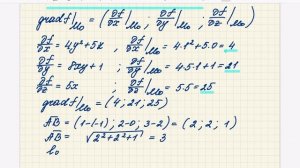 grad f|M₀ = (∂f/∂x|M₀ ; ∂f/∂y|M₀ ; ∂f/∂z|M₀)
∂f/∂x = 4y²+5z ; ∂f/∂x|M₀ = 4·1²+5·0 = 4
∂f/∂y = 8xy+1 ; ∂f/∂y|M₀ = 4·5·1+1 = 21
∂f/∂z = 5x ; ∂f/∂z|M₀ = 5·5 = 25
grad f|M₀ = (4; 21; 25)
AB = (1-(-1); 2-0; 3-2) = (2; 2; 1)
AB = √2²+2²+1² = 3
l₀